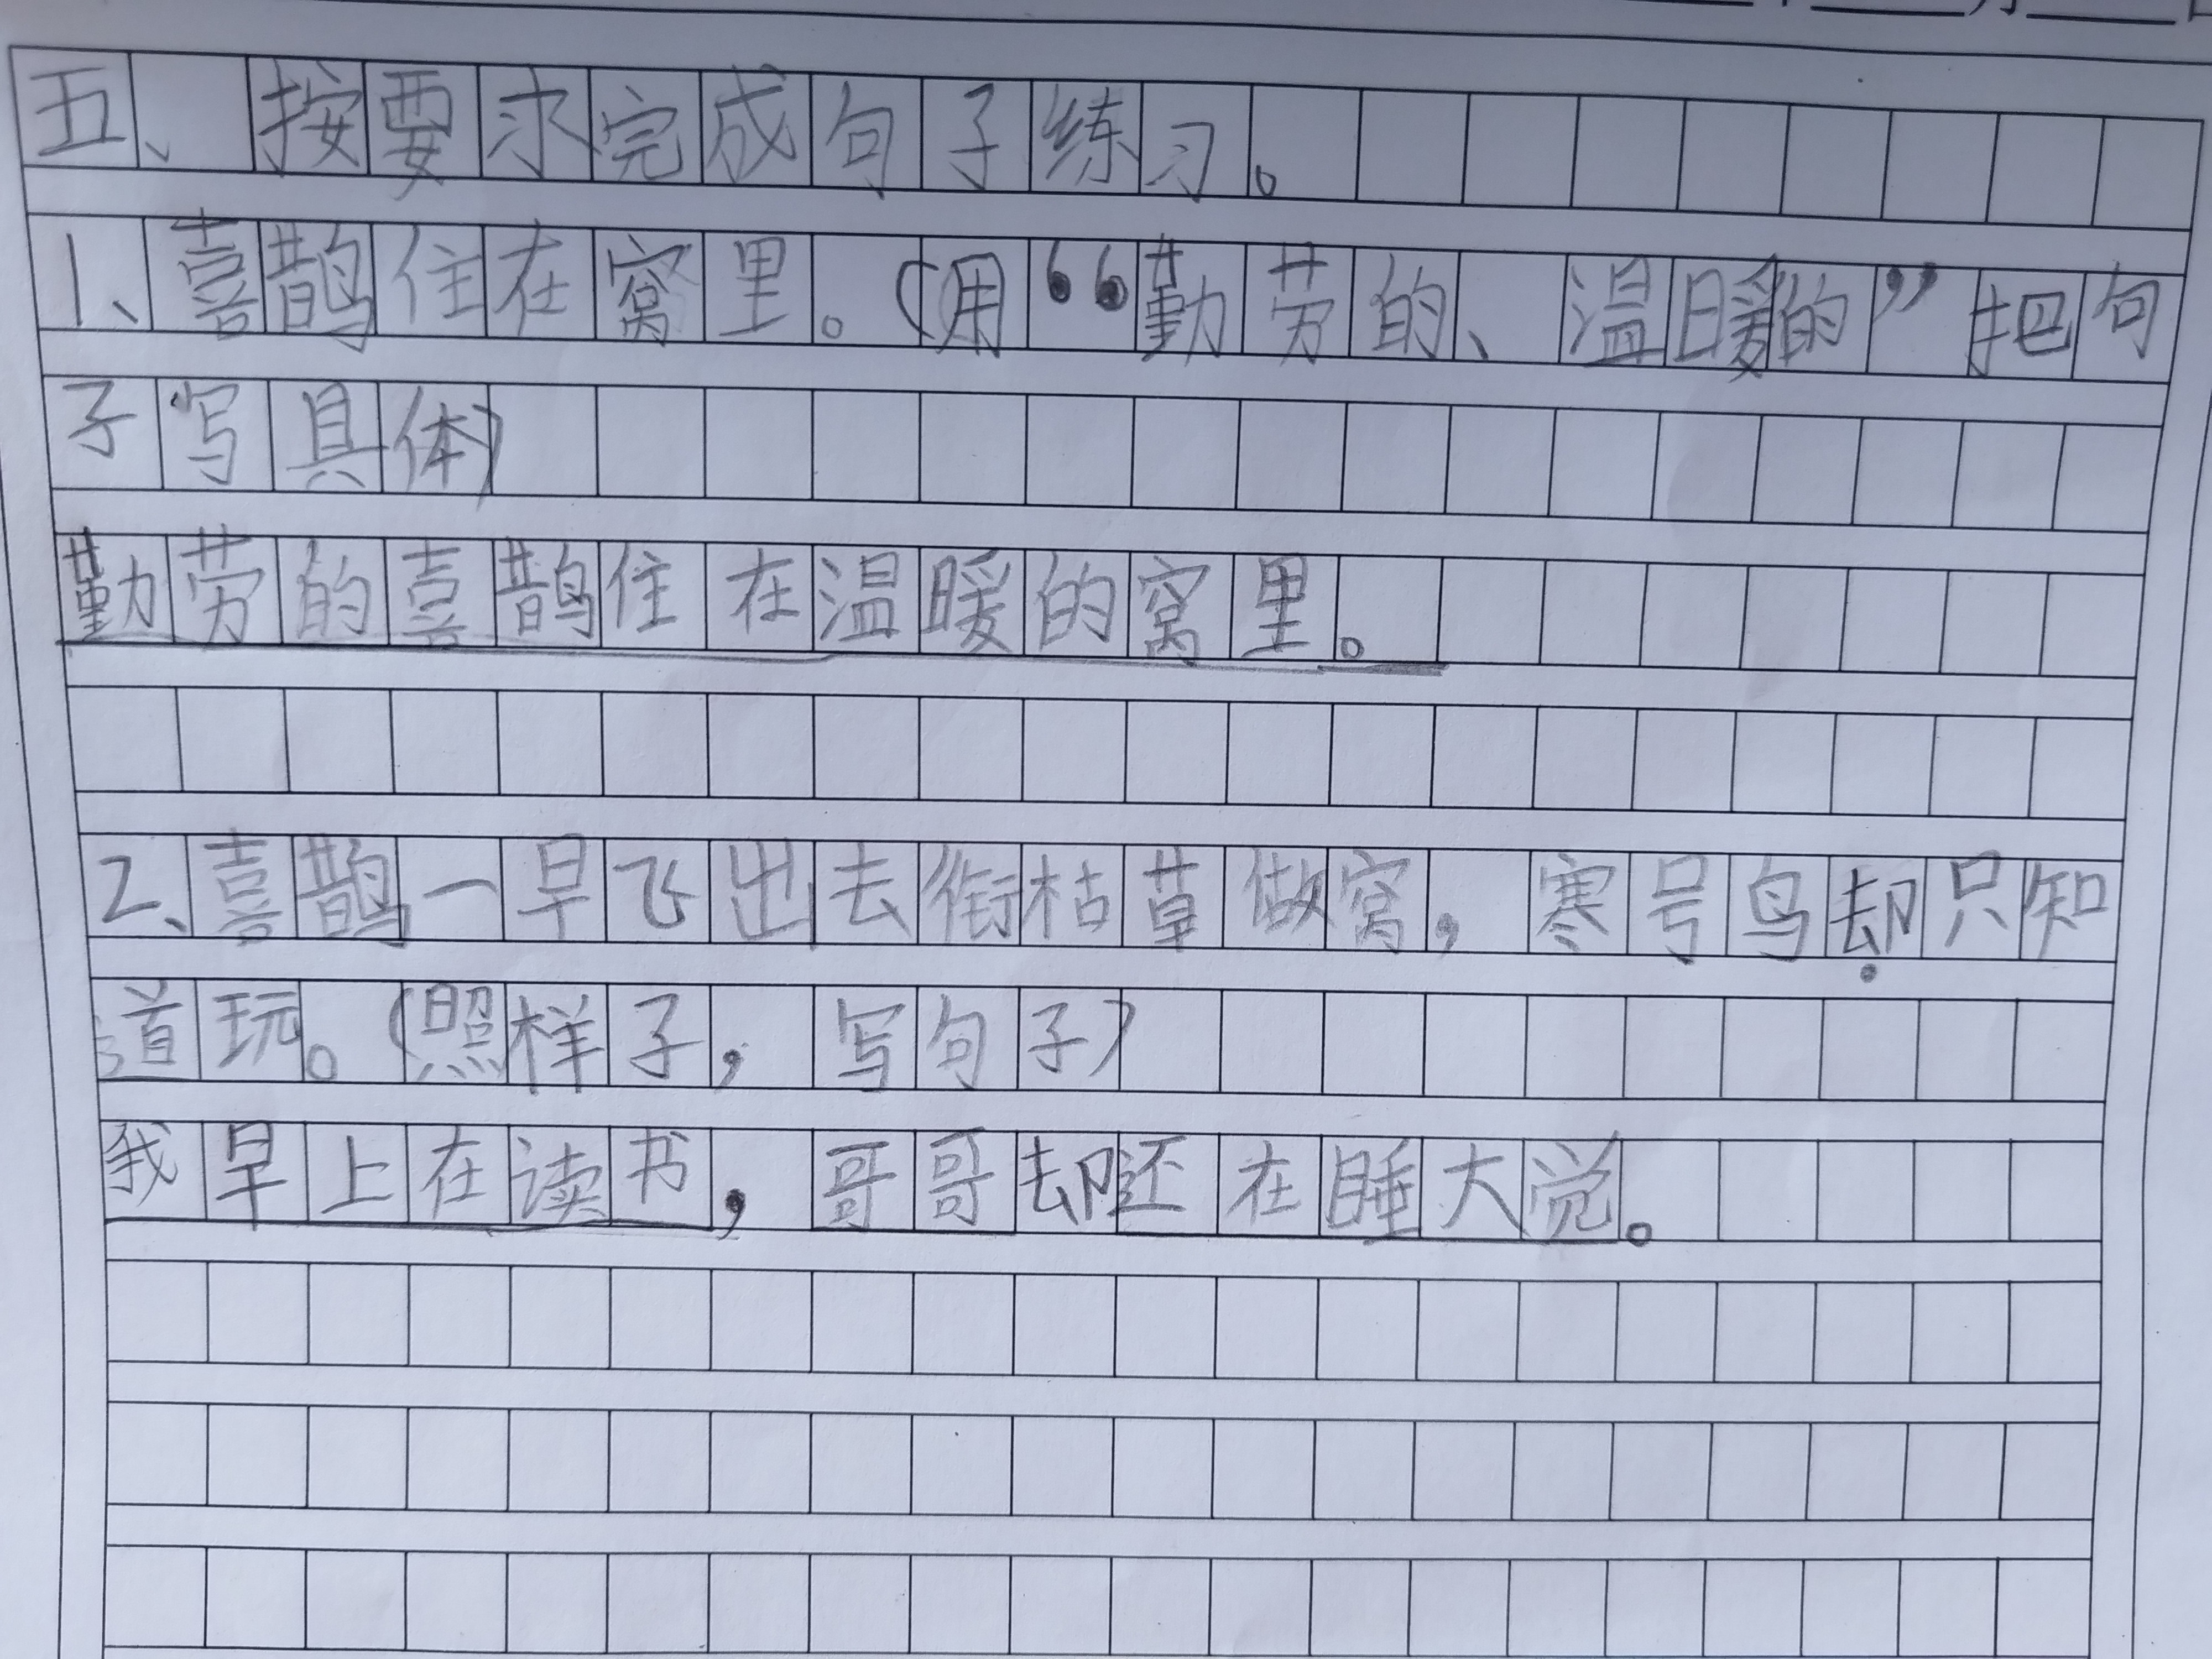 五、按要求完成句子练习。
1、喜鹊住在窝里。(用“勤劳的、温暖的”把句
子写具体)
勤劳的喜鹊住在温暖的窝里。
2、喜鹊一早飞出去衔枯草做窝，寒号鸟却只知
道玩。(照样子，写句子)
我早上在读书，哥哥却还在睡大觉。